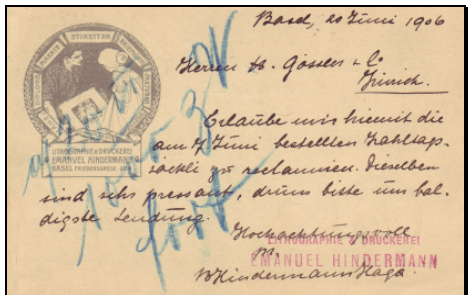 Basel, 20 Juni 1906
PLAKATE
ETIKETTEN
DIPLOME
LITHOGRAPHIE & DRUCKEREI
EMANUEL HINDERMANN
BASEL FRIEDENSGASSE
Herren B. Gossler & Co
Zürich.
Erlaube mir hiemit die
am 7 Juni bestellten Zahltags-
säckli zu reclamiren. Dieselben
sind sehr pressant, drum bitte um bal-
digste Sendung.
Hochachtungsvoll
LITHOGRAPHIE & DRUCKEREI
EMANUEL HINDERMANN
Hindermann